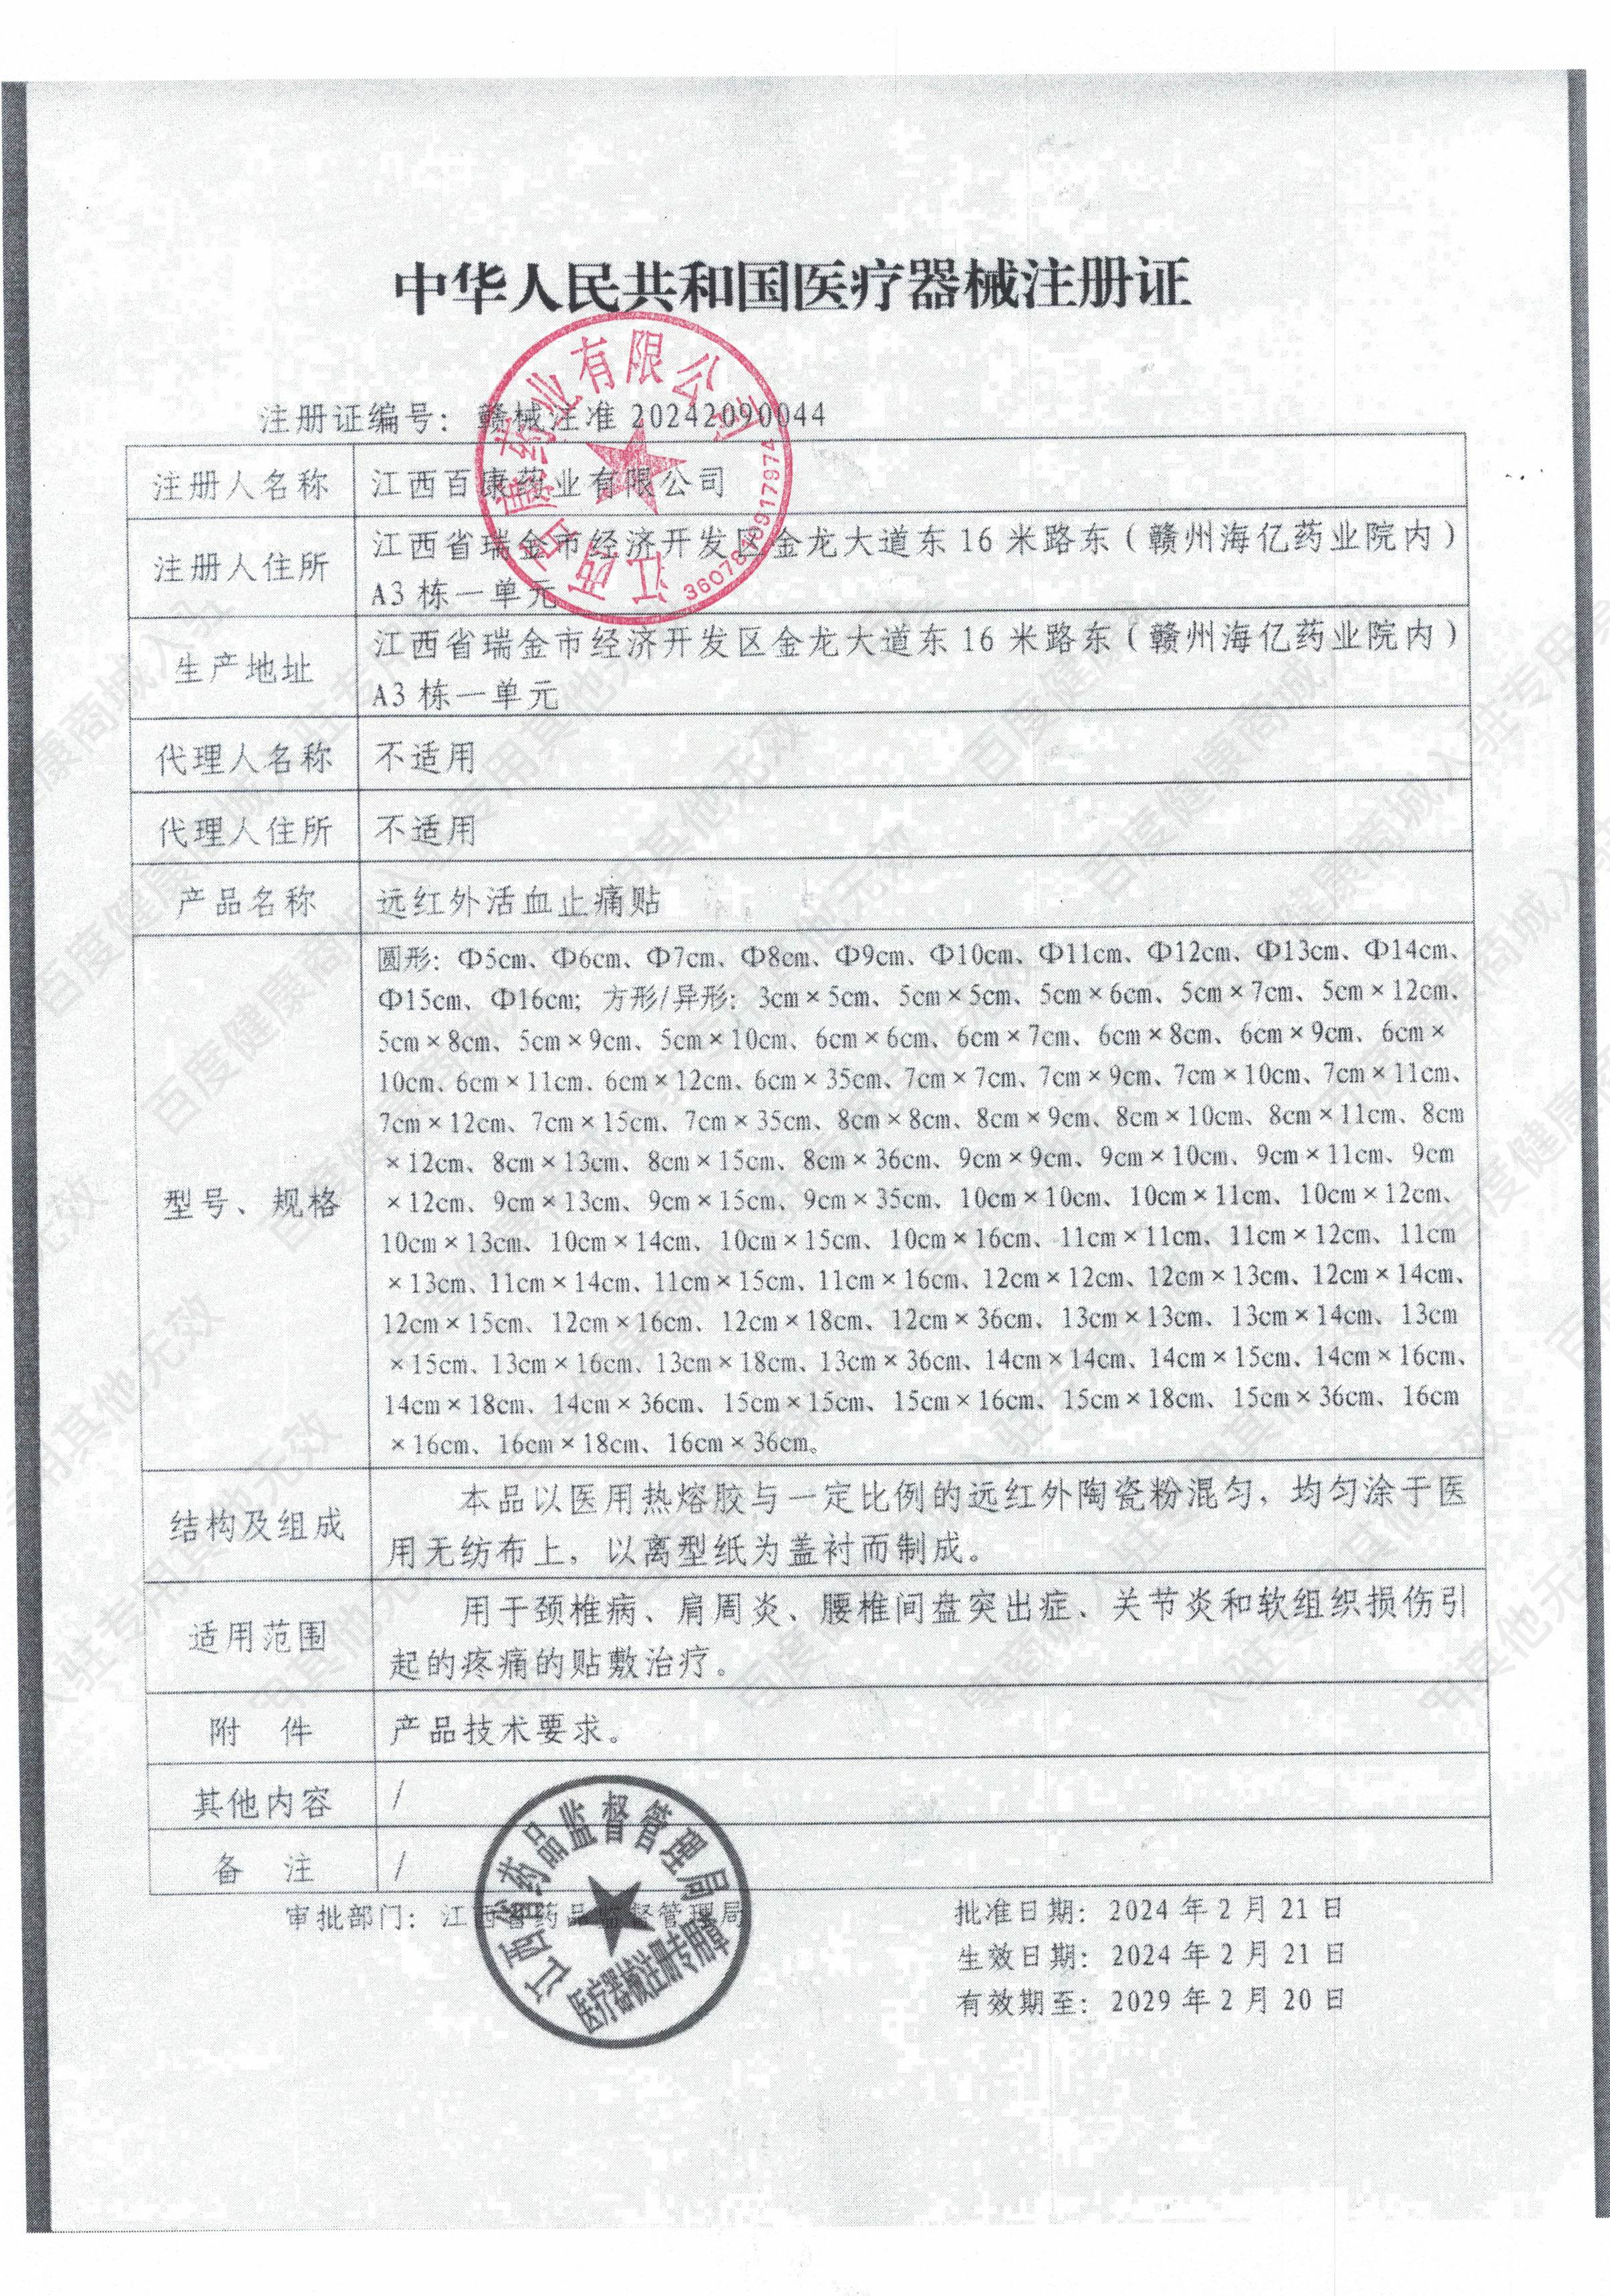 中华人民共和国医疗器械注册证
注册证编号：赣械注准 20242090044
注册人名称 江西百康药业有限公司
注册人住所 江西省瑞金市经济开发区金龙大道东 16 米路东（赣州海亿药业院内）
A3 栋一单元
生产地址 江西省瑞金市经济开发区金龙大道东 16 米路东（赣州海亿药业院内）
A3 栋一单元
代理人名称 不适用
代理人住所 不适用
产品名称 远红外活血止痛贴
型号、规格
圆形：Φ5cm、Φ6cm、Φ7cm、Φ8cm、Φ9cm、Φ10cm、Φ11cm、Φ12cm、Φ13cm、Φ14cm、
Φ15cm、Φ16cm；方形/异形：3cm×5cm、5cm×5cm、5cm×6cm、5cm×7cm、5cm×12cm、
5cm×8cm、5cm×9cm、5cm×10cm、6cm×6cm、6cm×7cm、6cm×8cm、6cm×9cm、6cm×
10cm、6cm×11cm、6cm×12cm、6cm×35cm、7cm×7cm、7cm×9cm、7cm×10cm、7cm×11cm、
7cm×12cm、7cm×15cm、7cm×35cm、8cm×8cm、8cm×9cm、8cm×10cm、8cm×11cm、8cm
×12cm、8cm×13cm、8cm×15cm、8cm×36cm、9cm×9cm、9cm×10cm、9cm×11cm、9cm
×12cm、9cm×13cm、9cm×15cm、9cm×35cm、10cm×10cm、10cm×11cm、10cm×12cm、
10cm×13cm、10cm×14cm、10cm×15cm、10cm×16cm、11cm×11cm、11cm×12cm、11cm
×13cm、11cm×14cm、11cm×15cm、11cm×16cm、12cm×12cm、12cm×13cm、12cm×14cm、
12cm×15cm、12cm×16cm、12cm×18cm、12cm×36cm、13cm×13cm、13cm×14cm、13cm
×15cm、13cm×16cm、13cm×18cm、13cm×36cm、14cm×14cm、14cm×15cm、14cm×16cm、
14cm×18cm、14cm×36cm、15cm×15cm、15cm×16cm、15cm×18cm、15cm×36cm、16cm
×16cm、16cm×18cm、16cm×36cm。
结构及组成 本品以医用热熔胶与一定比例的远红外陶瓷粉混匀，均匀涂于医
用无纺布上，以离型纸为盖衬而制成。
适用范围 用于颈椎病、肩周炎、腰椎间盘突出症、关节炎和软组织损伤引
起的疼痛的贴敷治疗。
附 件 产品技术要求。
其他内容 /
备 注 /
审批部门：江西省药品监督管理局
批准日期：2024 年 2 月 21 日
生效日期：2024 年 2 月 21 日
有效期至：2029 年 2 月 20 日
江西百康药业有限公司
江西省药品监督管理局
医疗器械注册专用章